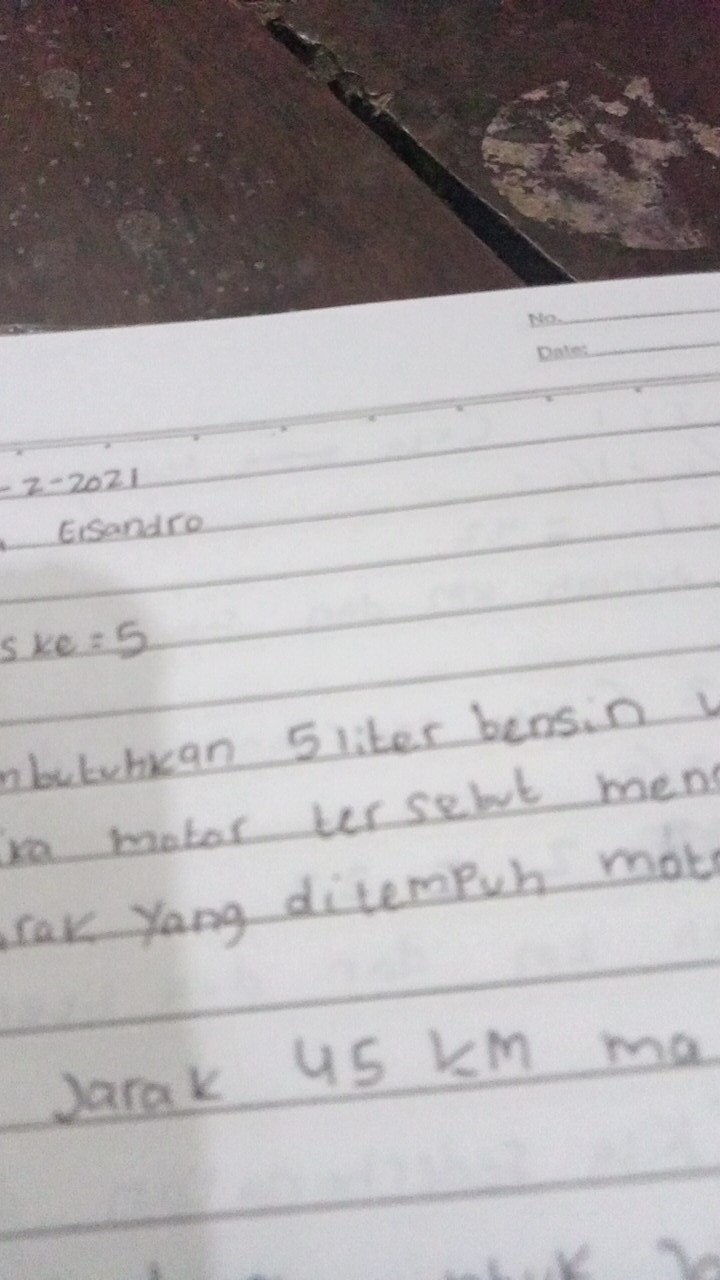 No.
Date:
-2-2021
Eisandro
s ke = 5
mbutuhkan 5 liter bensin
ika motor tersebut men
arak yang ditempuh moto
Jarak 45 km ma